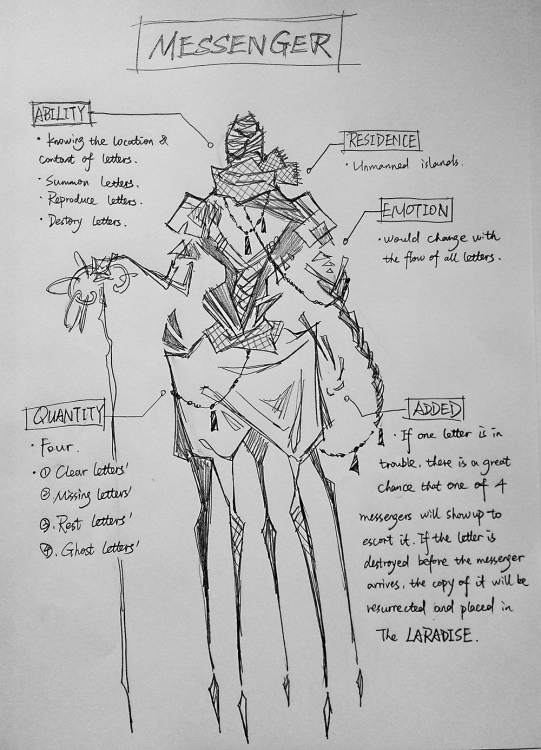 MESSENGER
ABILITY
· Knowing the location &
content of letters.
· Summon Letters.
· Reproduce letters.
· Destory letters.
RESIDENCE
· Unmanned islands.
EMOTION
· would change with
the flow of all letters.
QUANTITY
· Four.
· ① Clear letters'
② Missing letters'
③. Rest letters'
④. Ghost letters'
ADDED
· If one letter is in
trouble, there is a great
chance that one of 4
messengers will show up to
escort it. If the letter is
destroyed before the messenger
arrives, the copy of it will be
resurrected and placed in
The LARADISE.